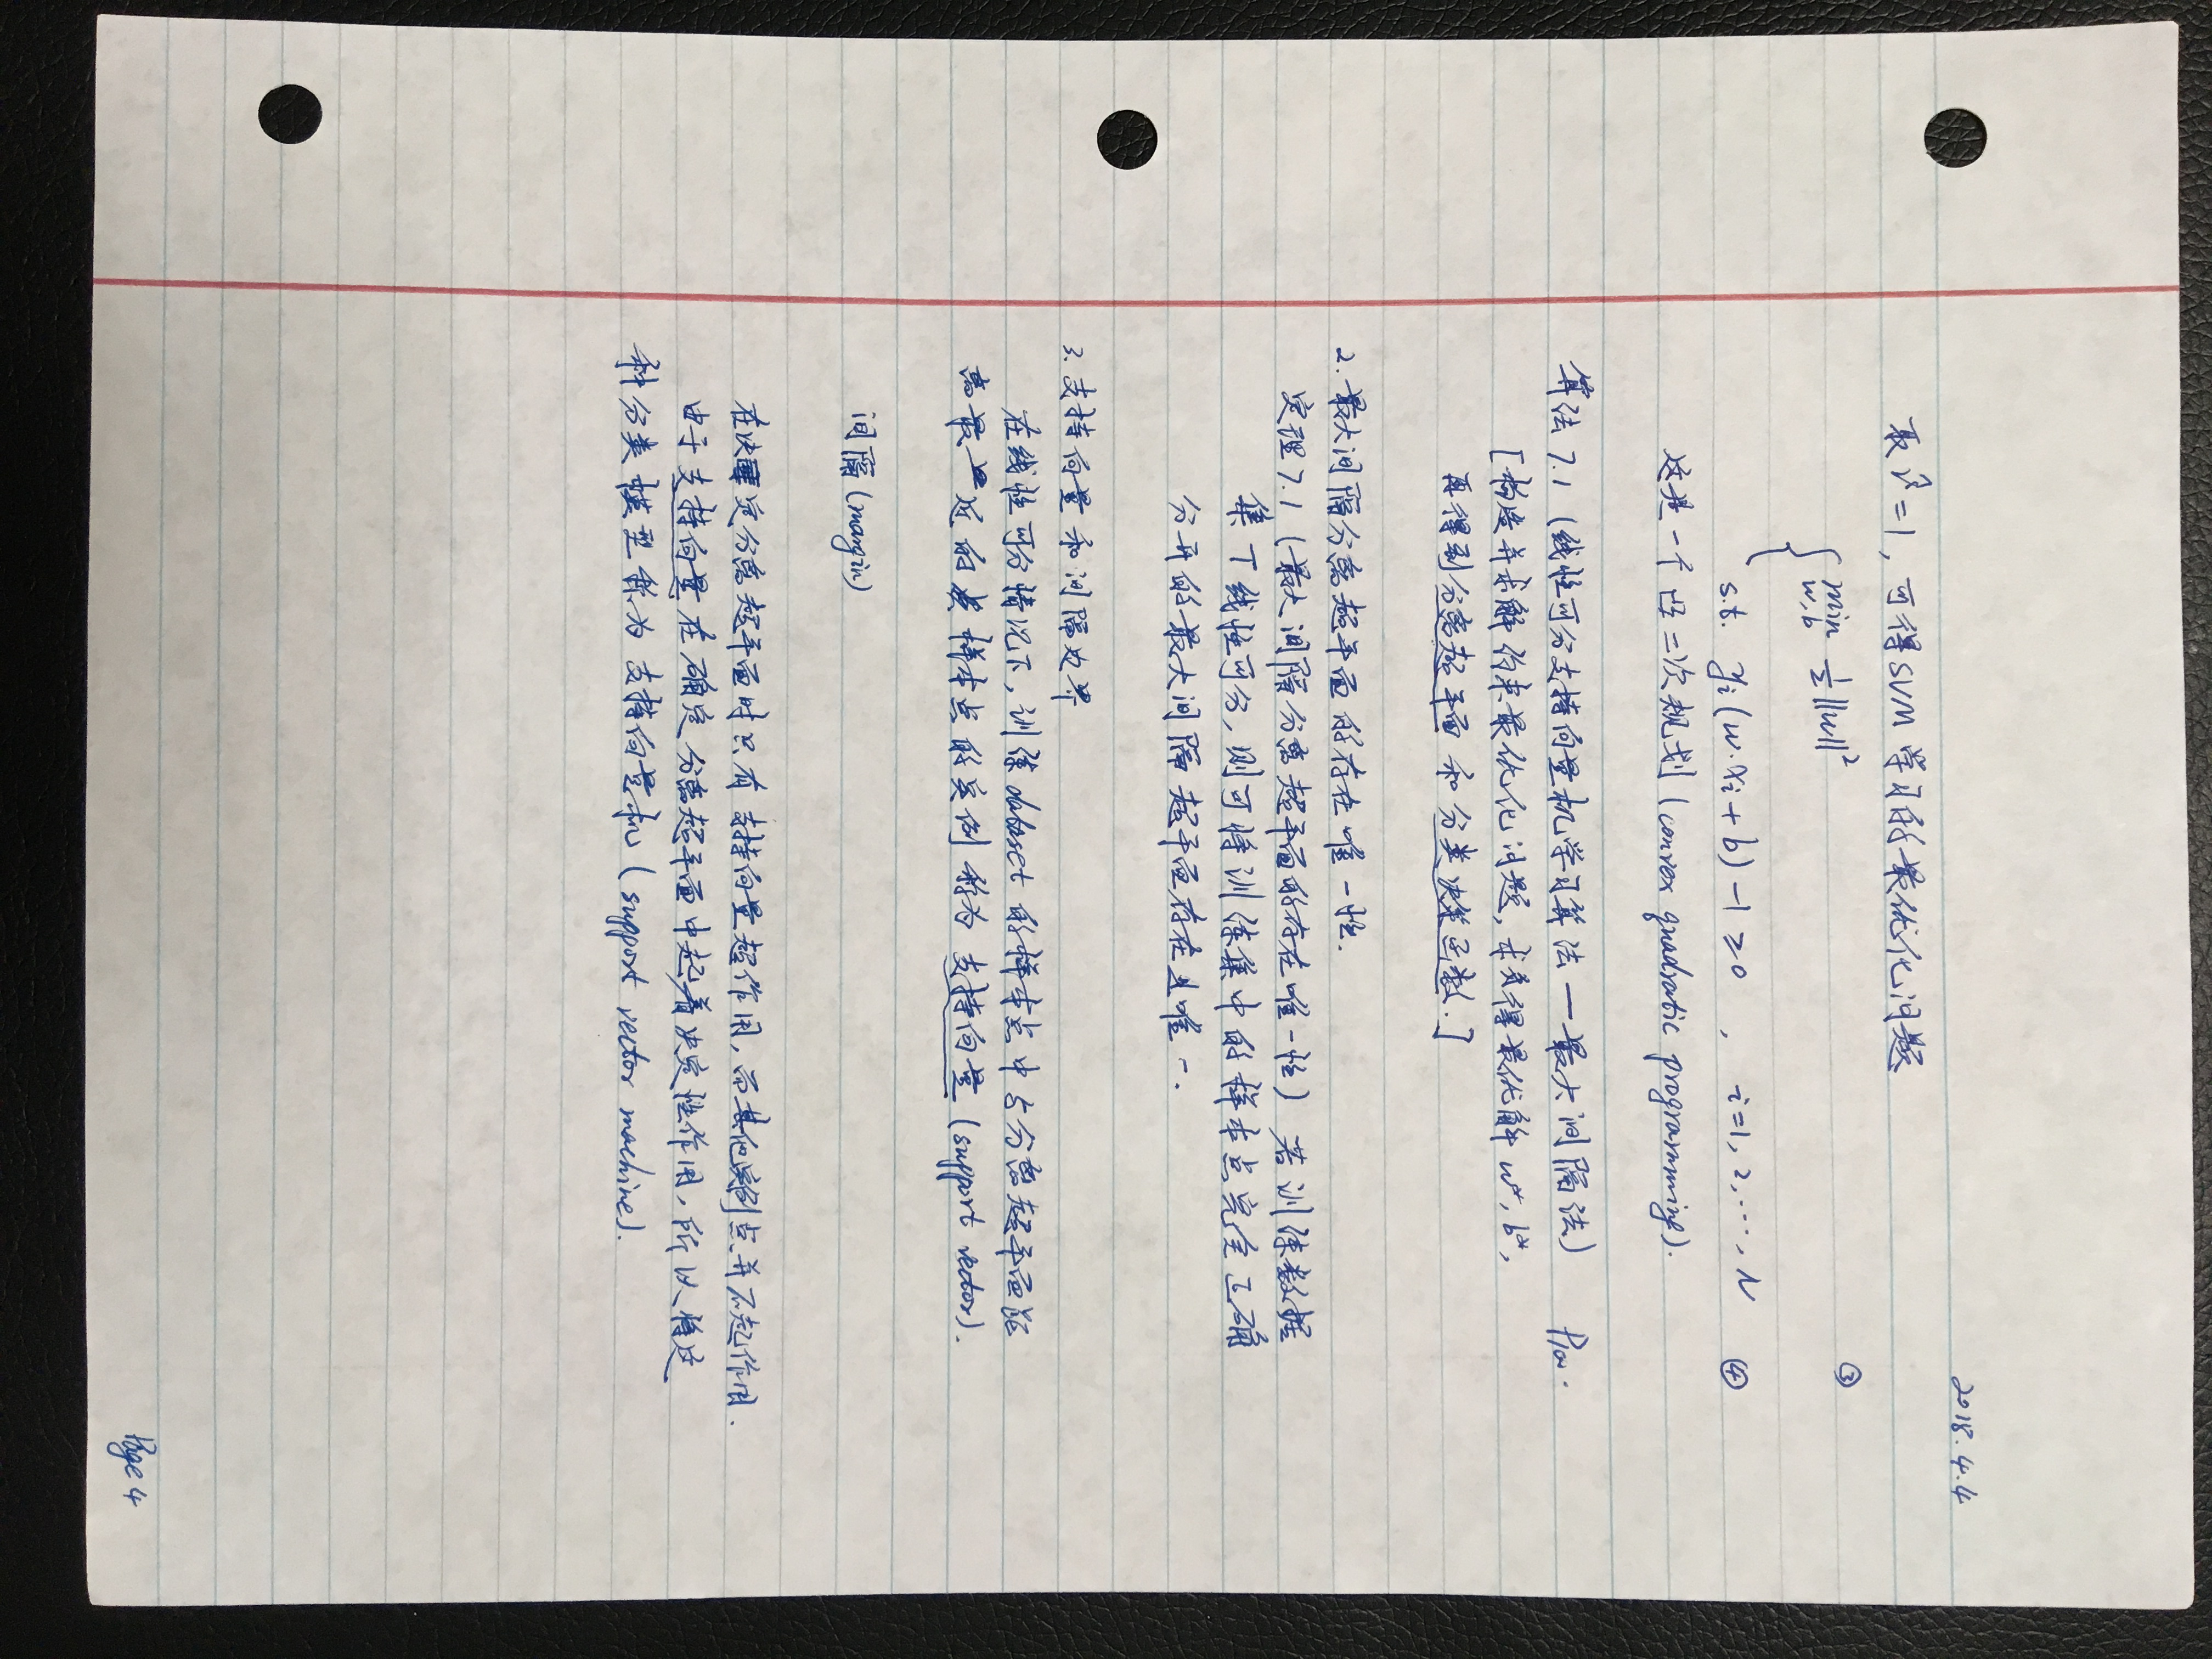 2018.4.4
取 γ̂=1, 可得SVM 学习的最优化问题
min w,b ½||w||² ③
s.t. yi(w·xi+b)-1≥0 , i=1,2,…,N ④
这是一个凸二次规划 (convex quadratic programming).
算法 7.1 (线性可分支持向量机学习算法 — 最大间隔法)
[构造并求解约束最优化问题, 求得最优解 w*, b*,
再得到分离超平面 和 分类决策函数.]
2. 最大间隔分离超平面的存在唯一性.
定理7.1 (最大间隔分离超平面的存在唯一性) 若训练数据
集 T 线性可分, 则可将训练集中的样本点完全正确
分开的最大间隔超平面存在且唯一.
3. 支持向量和间隔边界
在线性可分情况下, 训练 dataset 的样本点中与分离超平面距
离最近的样本点的实例称为 支持向量 (support vector).
间隔 (margin)
在决定分离超平面时只有支持向量起作用, 而其他实例点并不起作用.
由于支持向量在确定分离超平面中起着决定性作用, 所以将这
种分类模型称为 支持向量机 (support vector machine).
Page 4